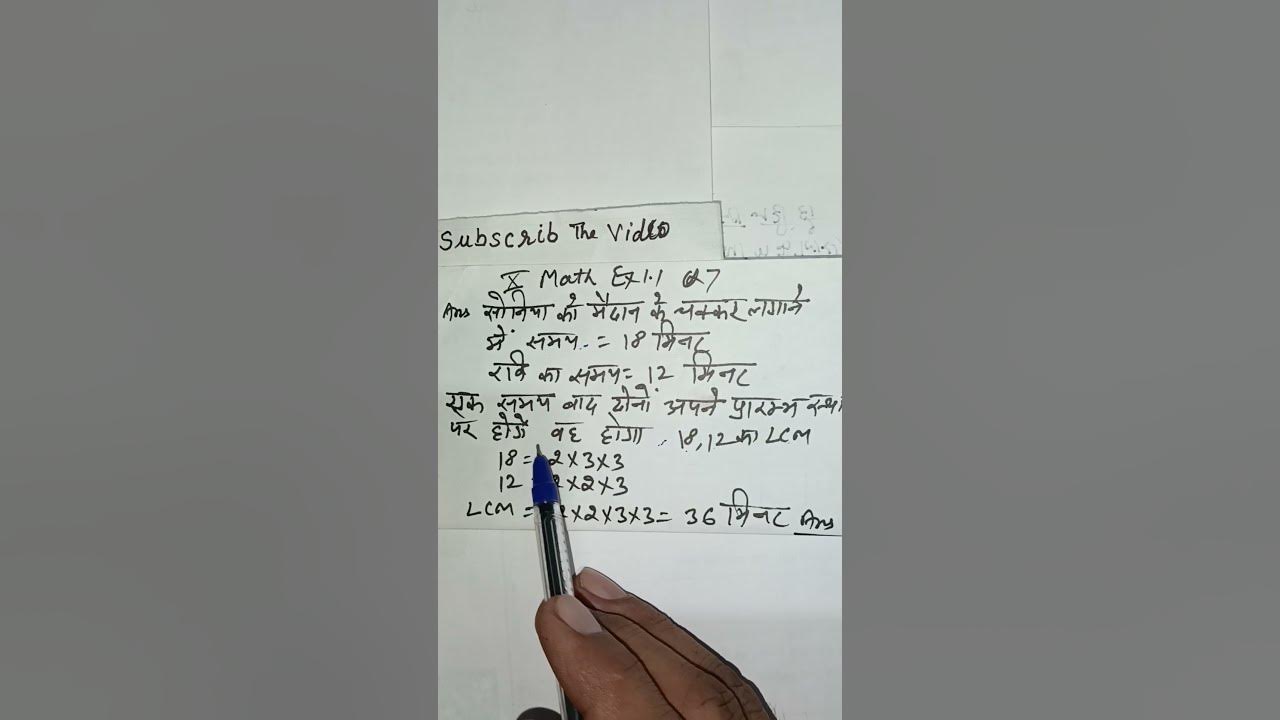 Subscrib The Video
X Math Ex 1.1 Q7
Ans सोनिया को मैदान के चक्कर लगाने
में समय = 18 मिनट
रवि का समय = 12 मिनट
समय बाद दोनों अपने प्रारम्भ
पर होगें वह होगा 18, 12 का LCM
18 = 2×3×3
12 = 2×2×3
LCM = 2×2×3×3 = 36 मिनट Ans